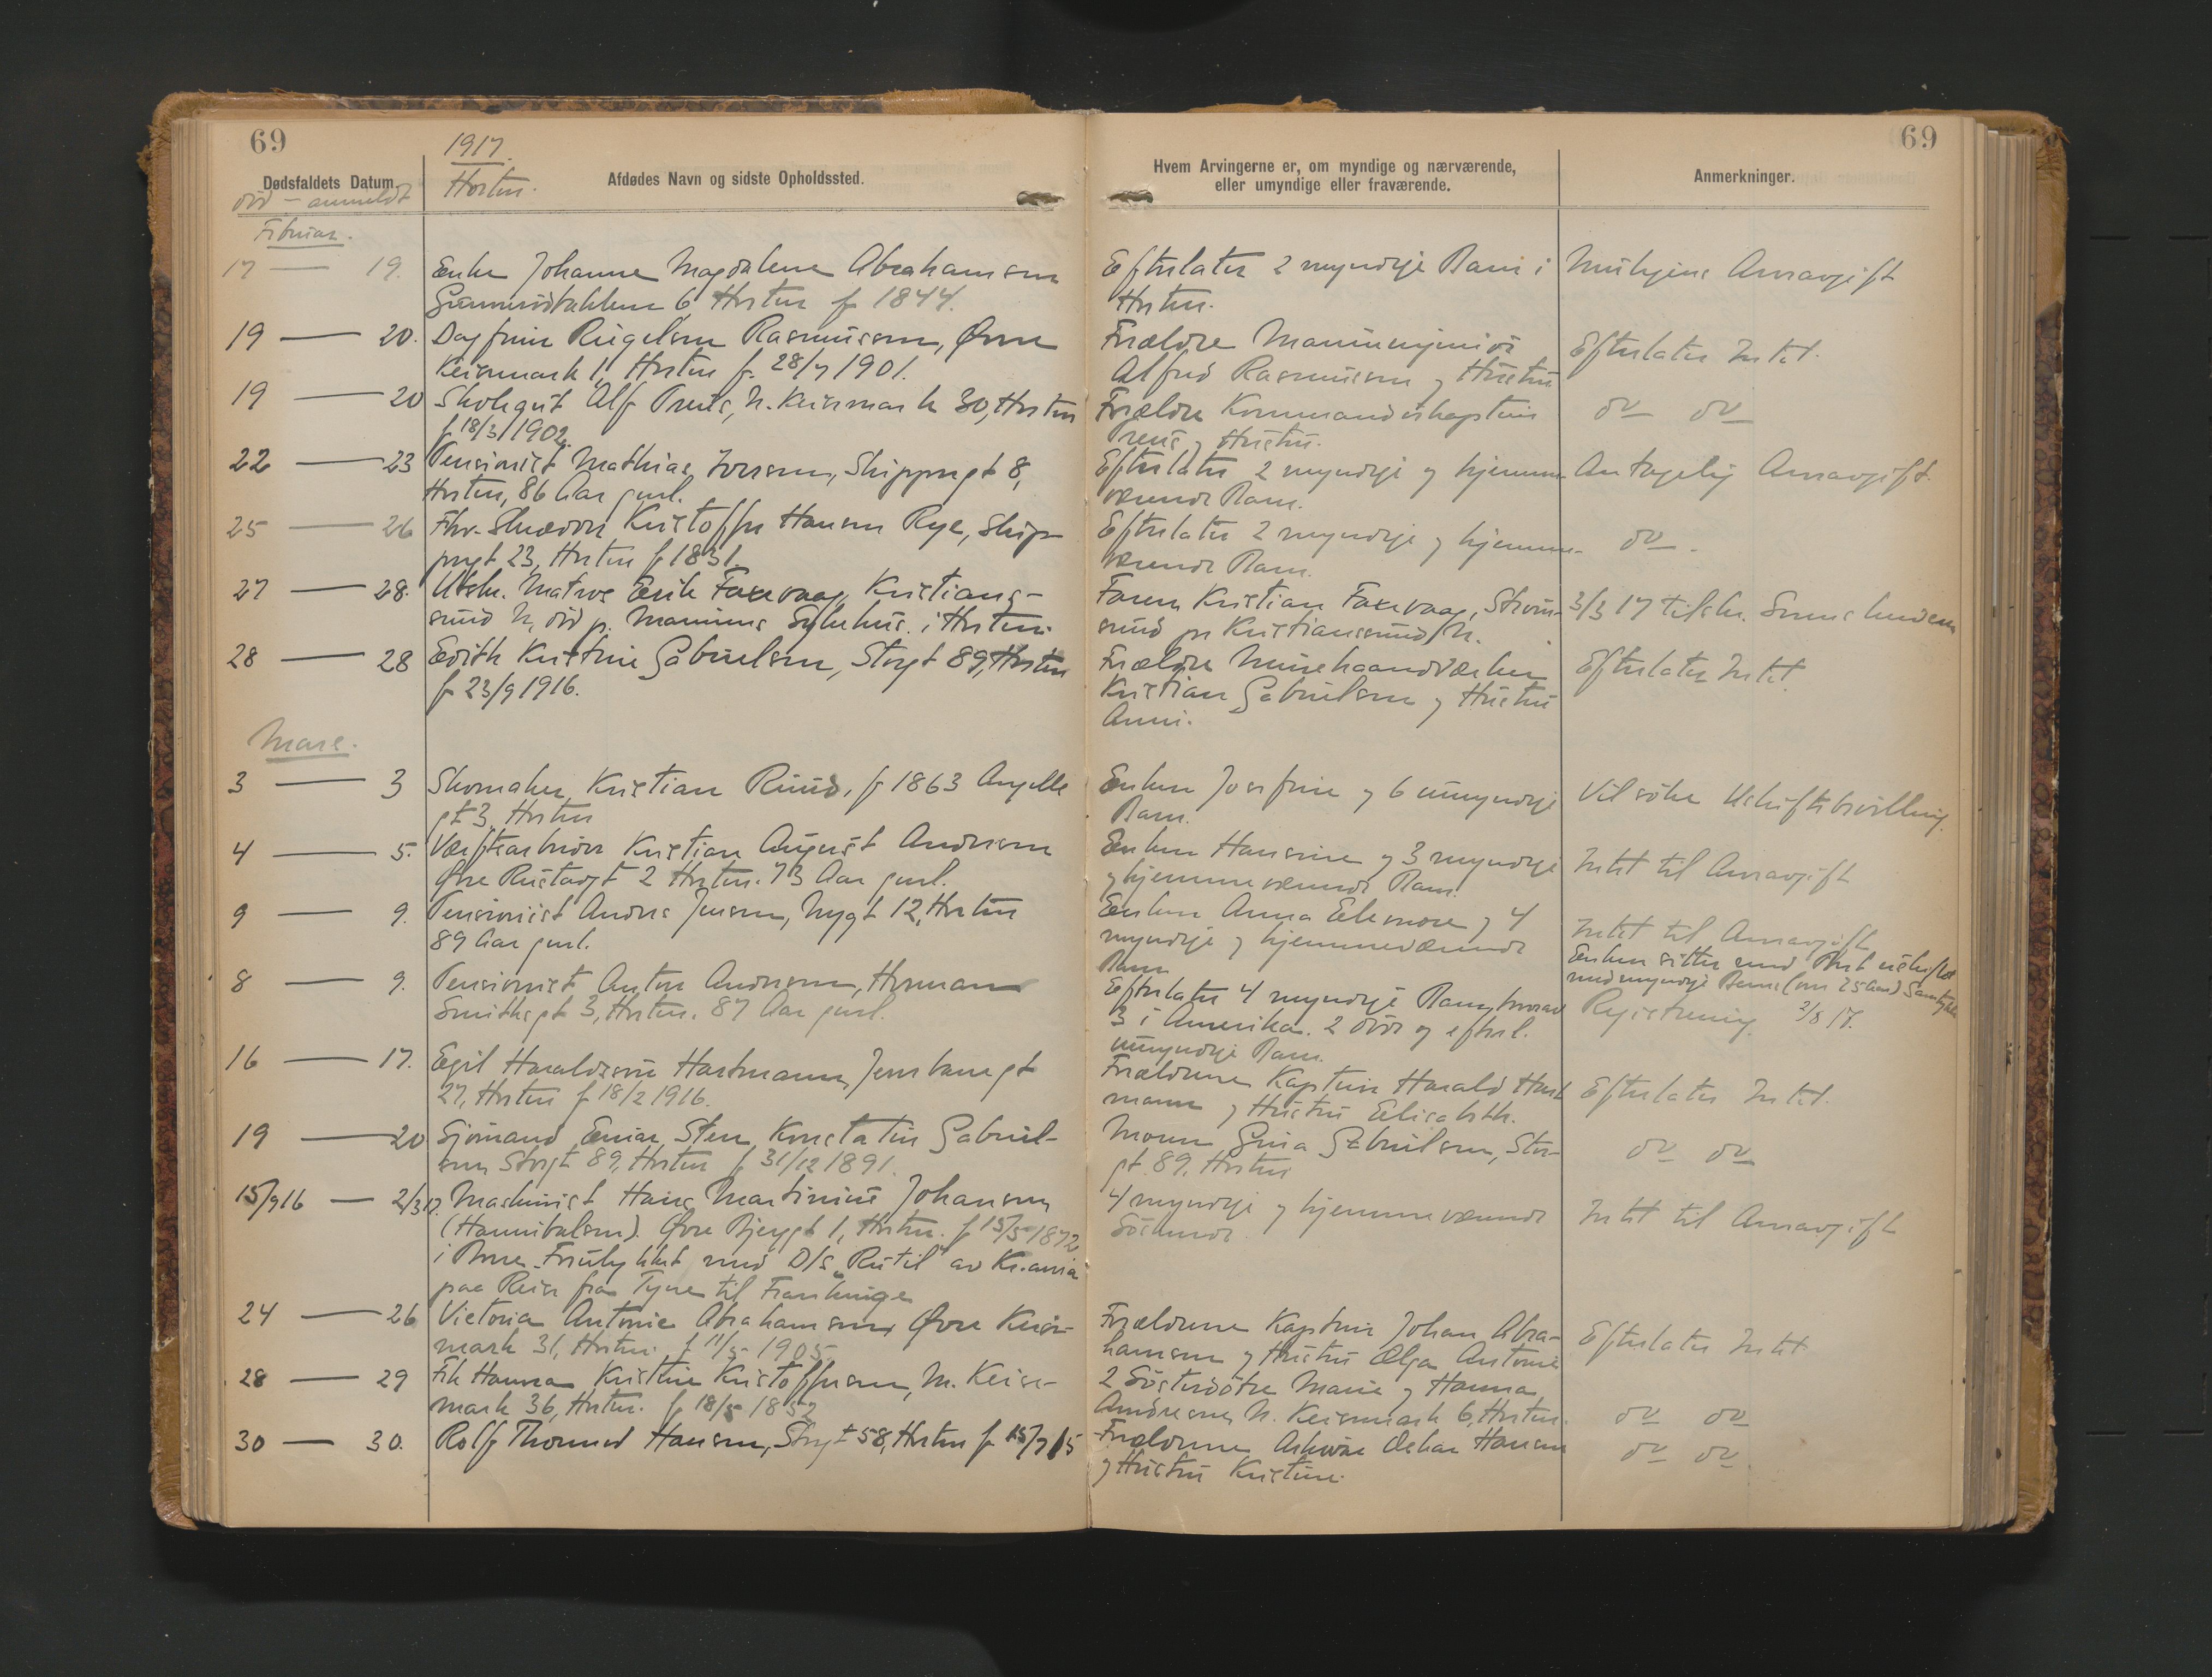 69
1917.
Horten.
Dødsfaldets Datum.
død – anmeldt
Afdødes Navn og sidste Opholdssted.
Hvem Arvingerne er, om myndige og nærværende,
eller umyndige eller fraværende.
Anmerkninger.
69
Februar.
17 — 19. Enke Johanne Magdalene Abrahamsen
6 Horten f 1844.
Efterlater 2 myndige Barn i
Horten.
Muligens Arveavgift
19 — 20. Dagfinn Rasmussen, Øvre
Keisemark 1, Horten f. 28/7 1901.
Forældre Marineingeniør
Alfred Rasmussen og Hustru
Efterlater Intet.
19 — 20 Skolegut Alf Preus, N. Keisemark 30, Horten
f 18/3 1902.
Forældre Kommandørkaptein
Preus og Hustru.
do do
22 — 23 Pensionist Mathias Iversen, Skippergt 8,
Horten, 86 Aar gml.
Efterlater 2 myndige og hjemme-
værende Barn.
Antagelig Arveavgift.
25 — 26 Fhv. Skrædder Kristoffer Hansen Rye, Skip-
pergt 23, Horten f 1831.
Efterlater 2 myndige og hjemme-
værende Barn.
do.
27 — 28. Utskr. Matros Erik Foxevaag, Kristians-
sund N, død p. Marinens Sykehus i Horten.
Faren Kristian Foxevaag, Strøm-
sund pr Kristianssund N.
3/3 17 tilskr. Sorenskriveren
28 — 28 Edith Kristine Gabrielsen, Storgt 89, Horten
f 23/9 1916.
Forældre Minehaandværker
Kristian Gabrielsen og Hustru
Anni.
Efterlater Intet.
Mars.
3 — 3 Skomaker Kristian Ruud, f 1863 Angells
gt 3, Horten
Enken Josefine og 6 umyndige
Barn.
Vil søke Uskiftebevilling.
4 — 5. Værftsarbeider Kristian August Andersen
Øvre Rustadgt 2 Horten. 73 Aar gml.
Enken Hansine og 3 myndige
og hjemmeværende Barn
Intet til Arveavgift
9 — 9. Pensionist Anders Jensen, Nygt 12, Horten
89 Aar gml.
Enken Anna Elenore og 4
myndige og hjemmeværende
Barn
Intet til Arveavgift
Enken sitter med Boet uskiftet
med myndige Børns (over 25 Aar) Samtykke
8 — 9. Pensionist Anton Andersen, Herman
Smithsgt 3, Horten. 87 Aar gml.
Efterlater 4 myndige Barn, hvorav
3 i Amerika. 2 døde og efterl.
umyndige Barn.
Registrering 2/8 17.
16 — 17. Egil Haraldssøn Hartmann, Jernbanegt
27, Horten f 18/2 1916.
Forældrene Kaptein Harald Hart
mann og Hustru Elisabeth.
Efterlater Intet.
19 — 20 Sjømand Einar Sten Konstatin Gabriel-
sen, Storgt 89, Horten f 31/12 1891.
Moren Gina Gabrielsen, Stor-
gt 89, Horten
do do
15/9 16 — 2/3 17. Maskinist Hans Martinius Johansen
(Hannibalsen). Øvre Bjergt 1, Horten. f 15/5 1872
i Borre. Forulykket med D/S "Rutil" av Kr.ania
paa Reise fra Tyne til Frankrige
4 myndige og hjemmeværende
Søskende
Intet til Arveavgift
24 — 26 Victoria Antonie Abrahamsen, Øvre Keise-
mark 31, Horten. f 11/5 1905.
Forældrene Kaptein Johan Abra-
hamsen og Hustru Olga Antonie
Efterlater Intet
28 — 29 Frk Hanna Kristine Kristoffersen, M. Keise-
mark 36, Horten. f 18/5 1852
2 Søsterdøtre Marie og Hanna
Andresen, N. Keisemark 6, Horten.
do do
30 — 30. Rolf Thorved Hansen, Storgt 58, Horten f 15/7 15
Forældrene Oskar Hansen
og Hustru Kristine.
do do.